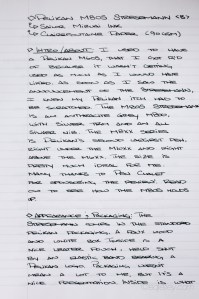 Pelikan M805 Stresemann (B)
Sailor Miruai Ink
Clairefontaine Paper (90gsm)
Intro/About: I used to have
a Pelikan M605, that I got rid
of because it wasn't getting
used as much as I would have
liked. As soon as I saw the
announcement of the Stresemann,
I knew my Pelikan itch had to
be scratched. The M805 Stresemann
is an anthracite grey M800,
with silver trim and an all
silver nib. The M8XX series
is Pelikan's second largest pen,
right under the M1XXX and right
above the M6XX. The size is
pretty much ideal for me.
Many thanks to Pen Chalet
for sponsoring the review! Read
on to see how the M805 holds
up.
Appearance & Packaging: The
Stresemann comes in the standard
Pelikan packaging, a grey hued
and white box. Inside is a
nice leather pouch, held shut
by an elastic band bearing a
Pelikan logo. Packaging doesn't
mean a lot to me, but it's a
nice presentation. Inside is what